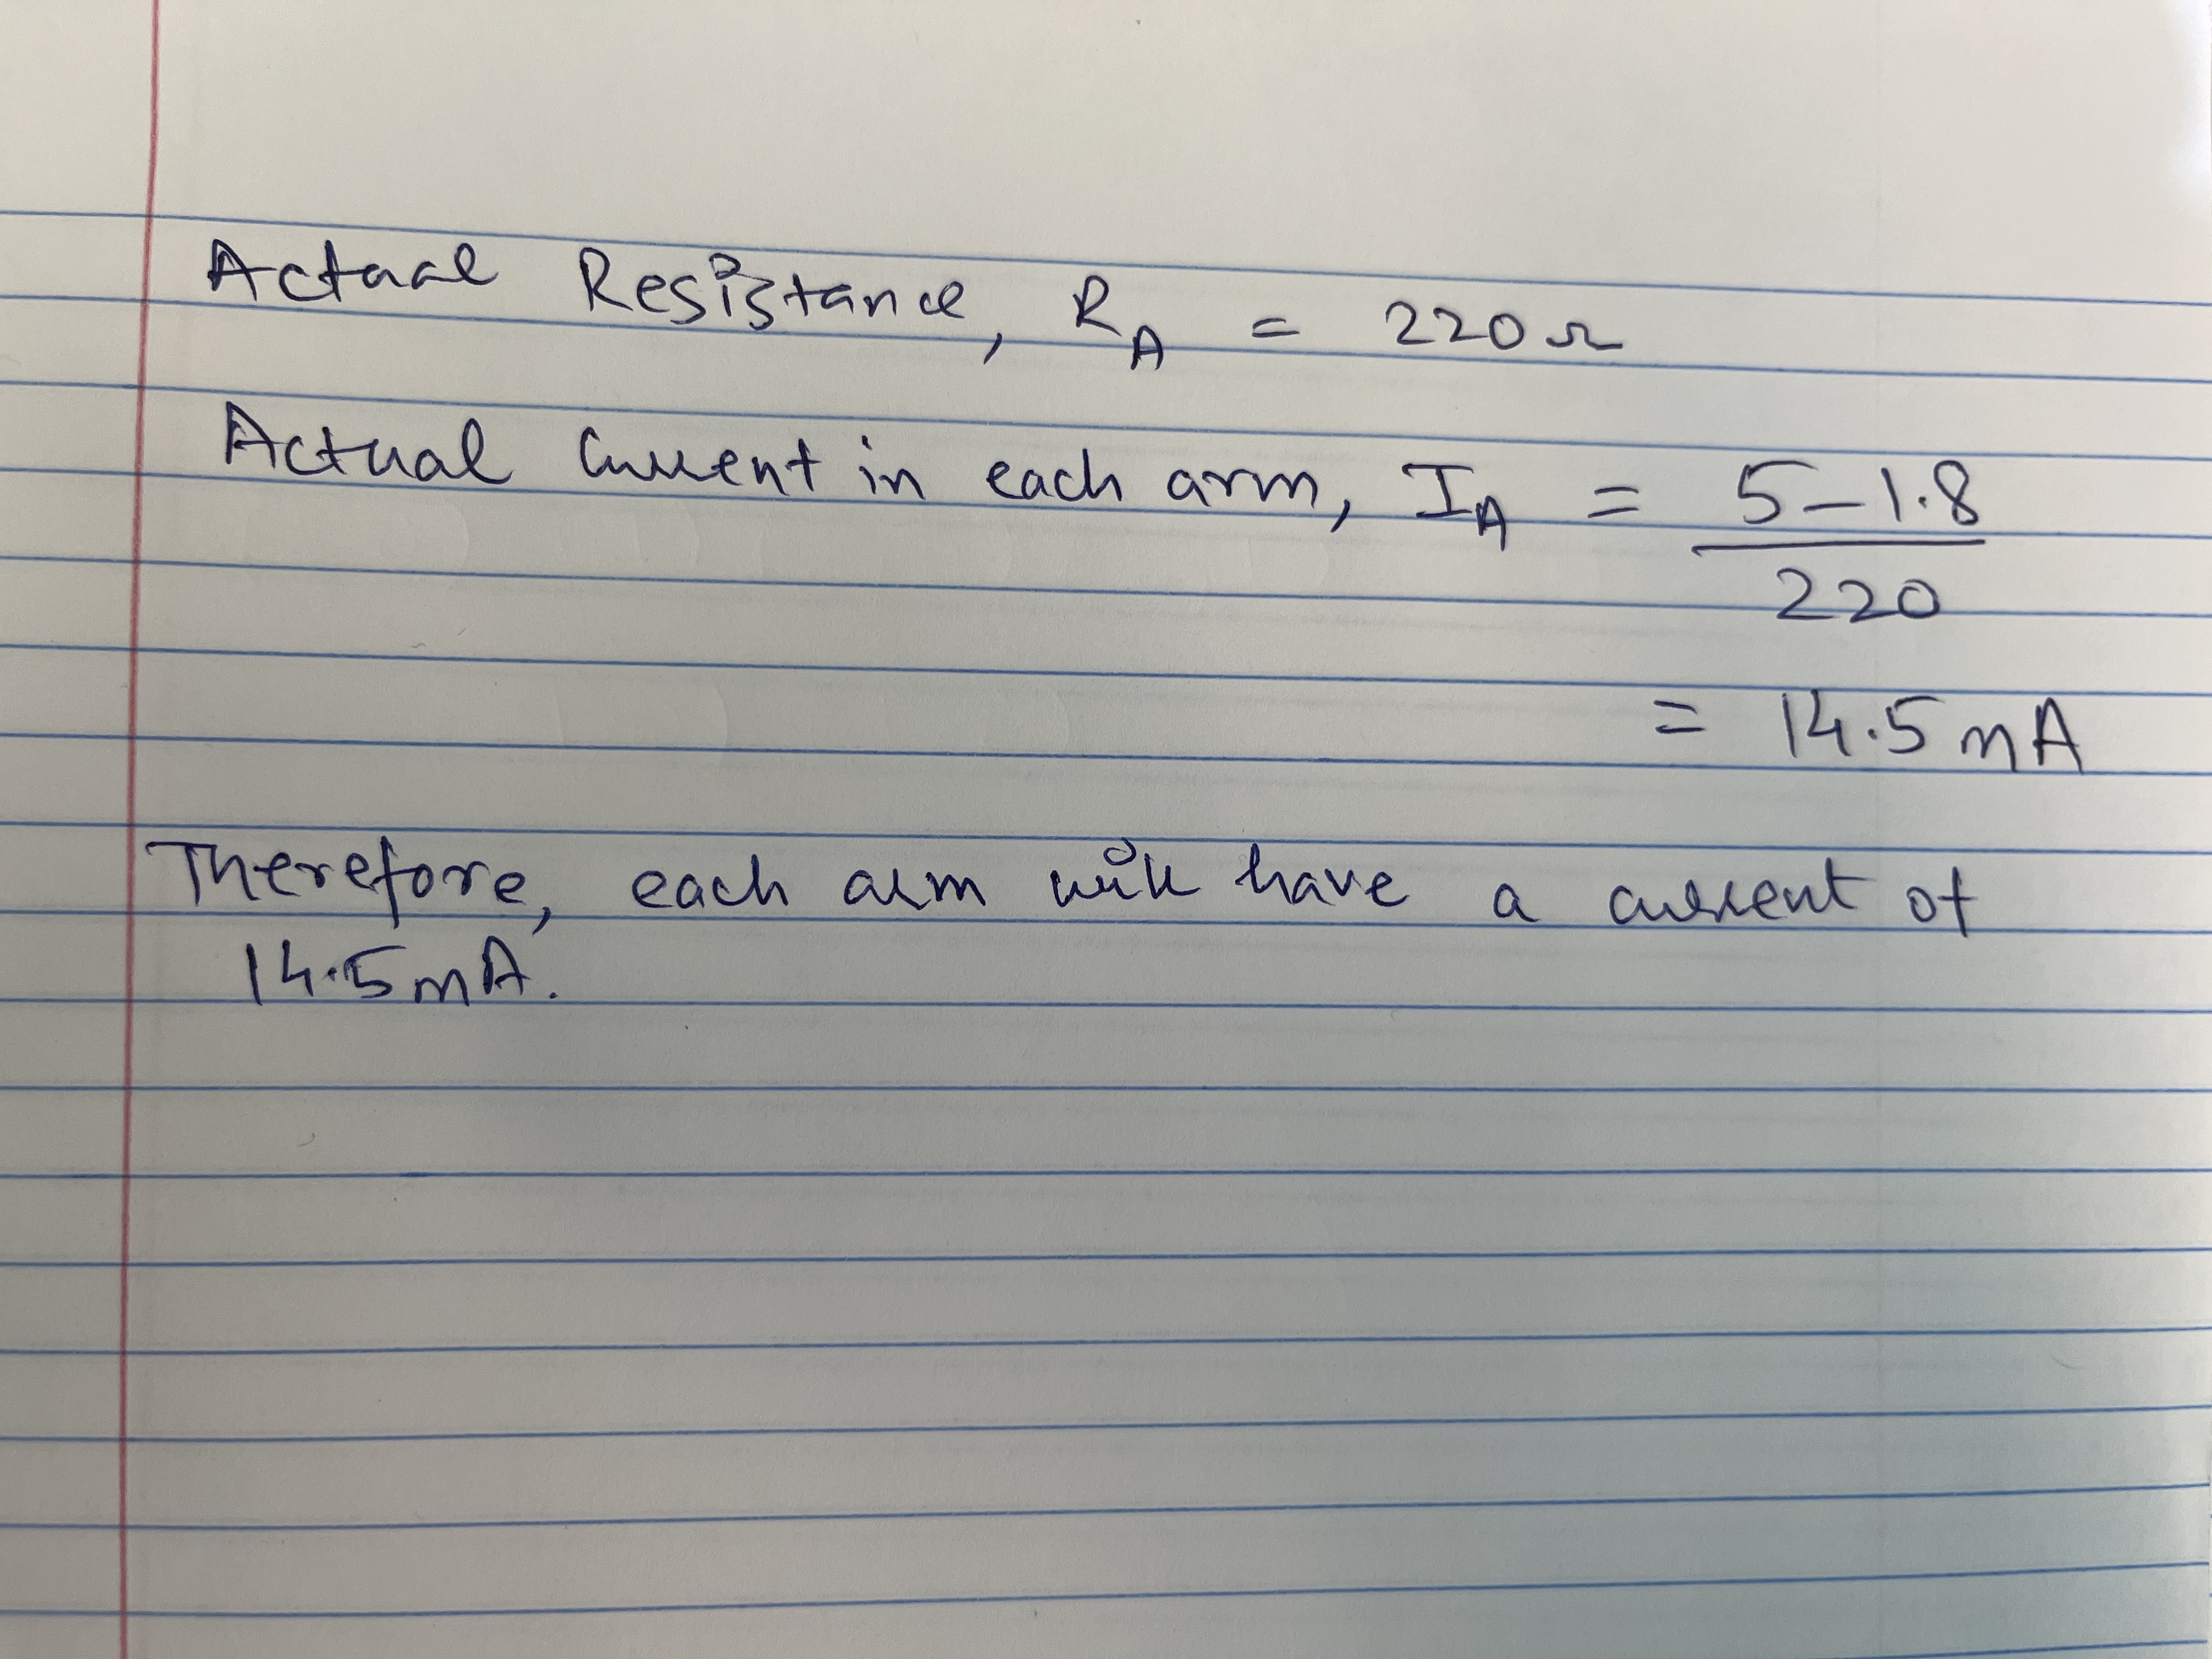 Actual Resistance, R_A = 220Ω
Actual Current in each arm, I_A = 5-1.8
220
= 14.5 mA
Therefore, each arm will have a current of
14.5mA.